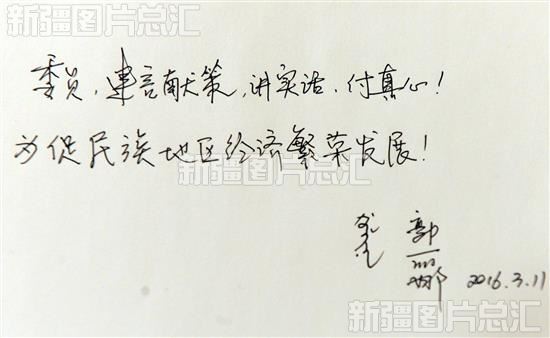 新疆图片总汇 新疆图片总汇
委员,建言献策,讲实话,付真心!
为促民族地区经济繁荣发展!
新疆图片总汇
郭
2016.3.11
新疆图片总汇